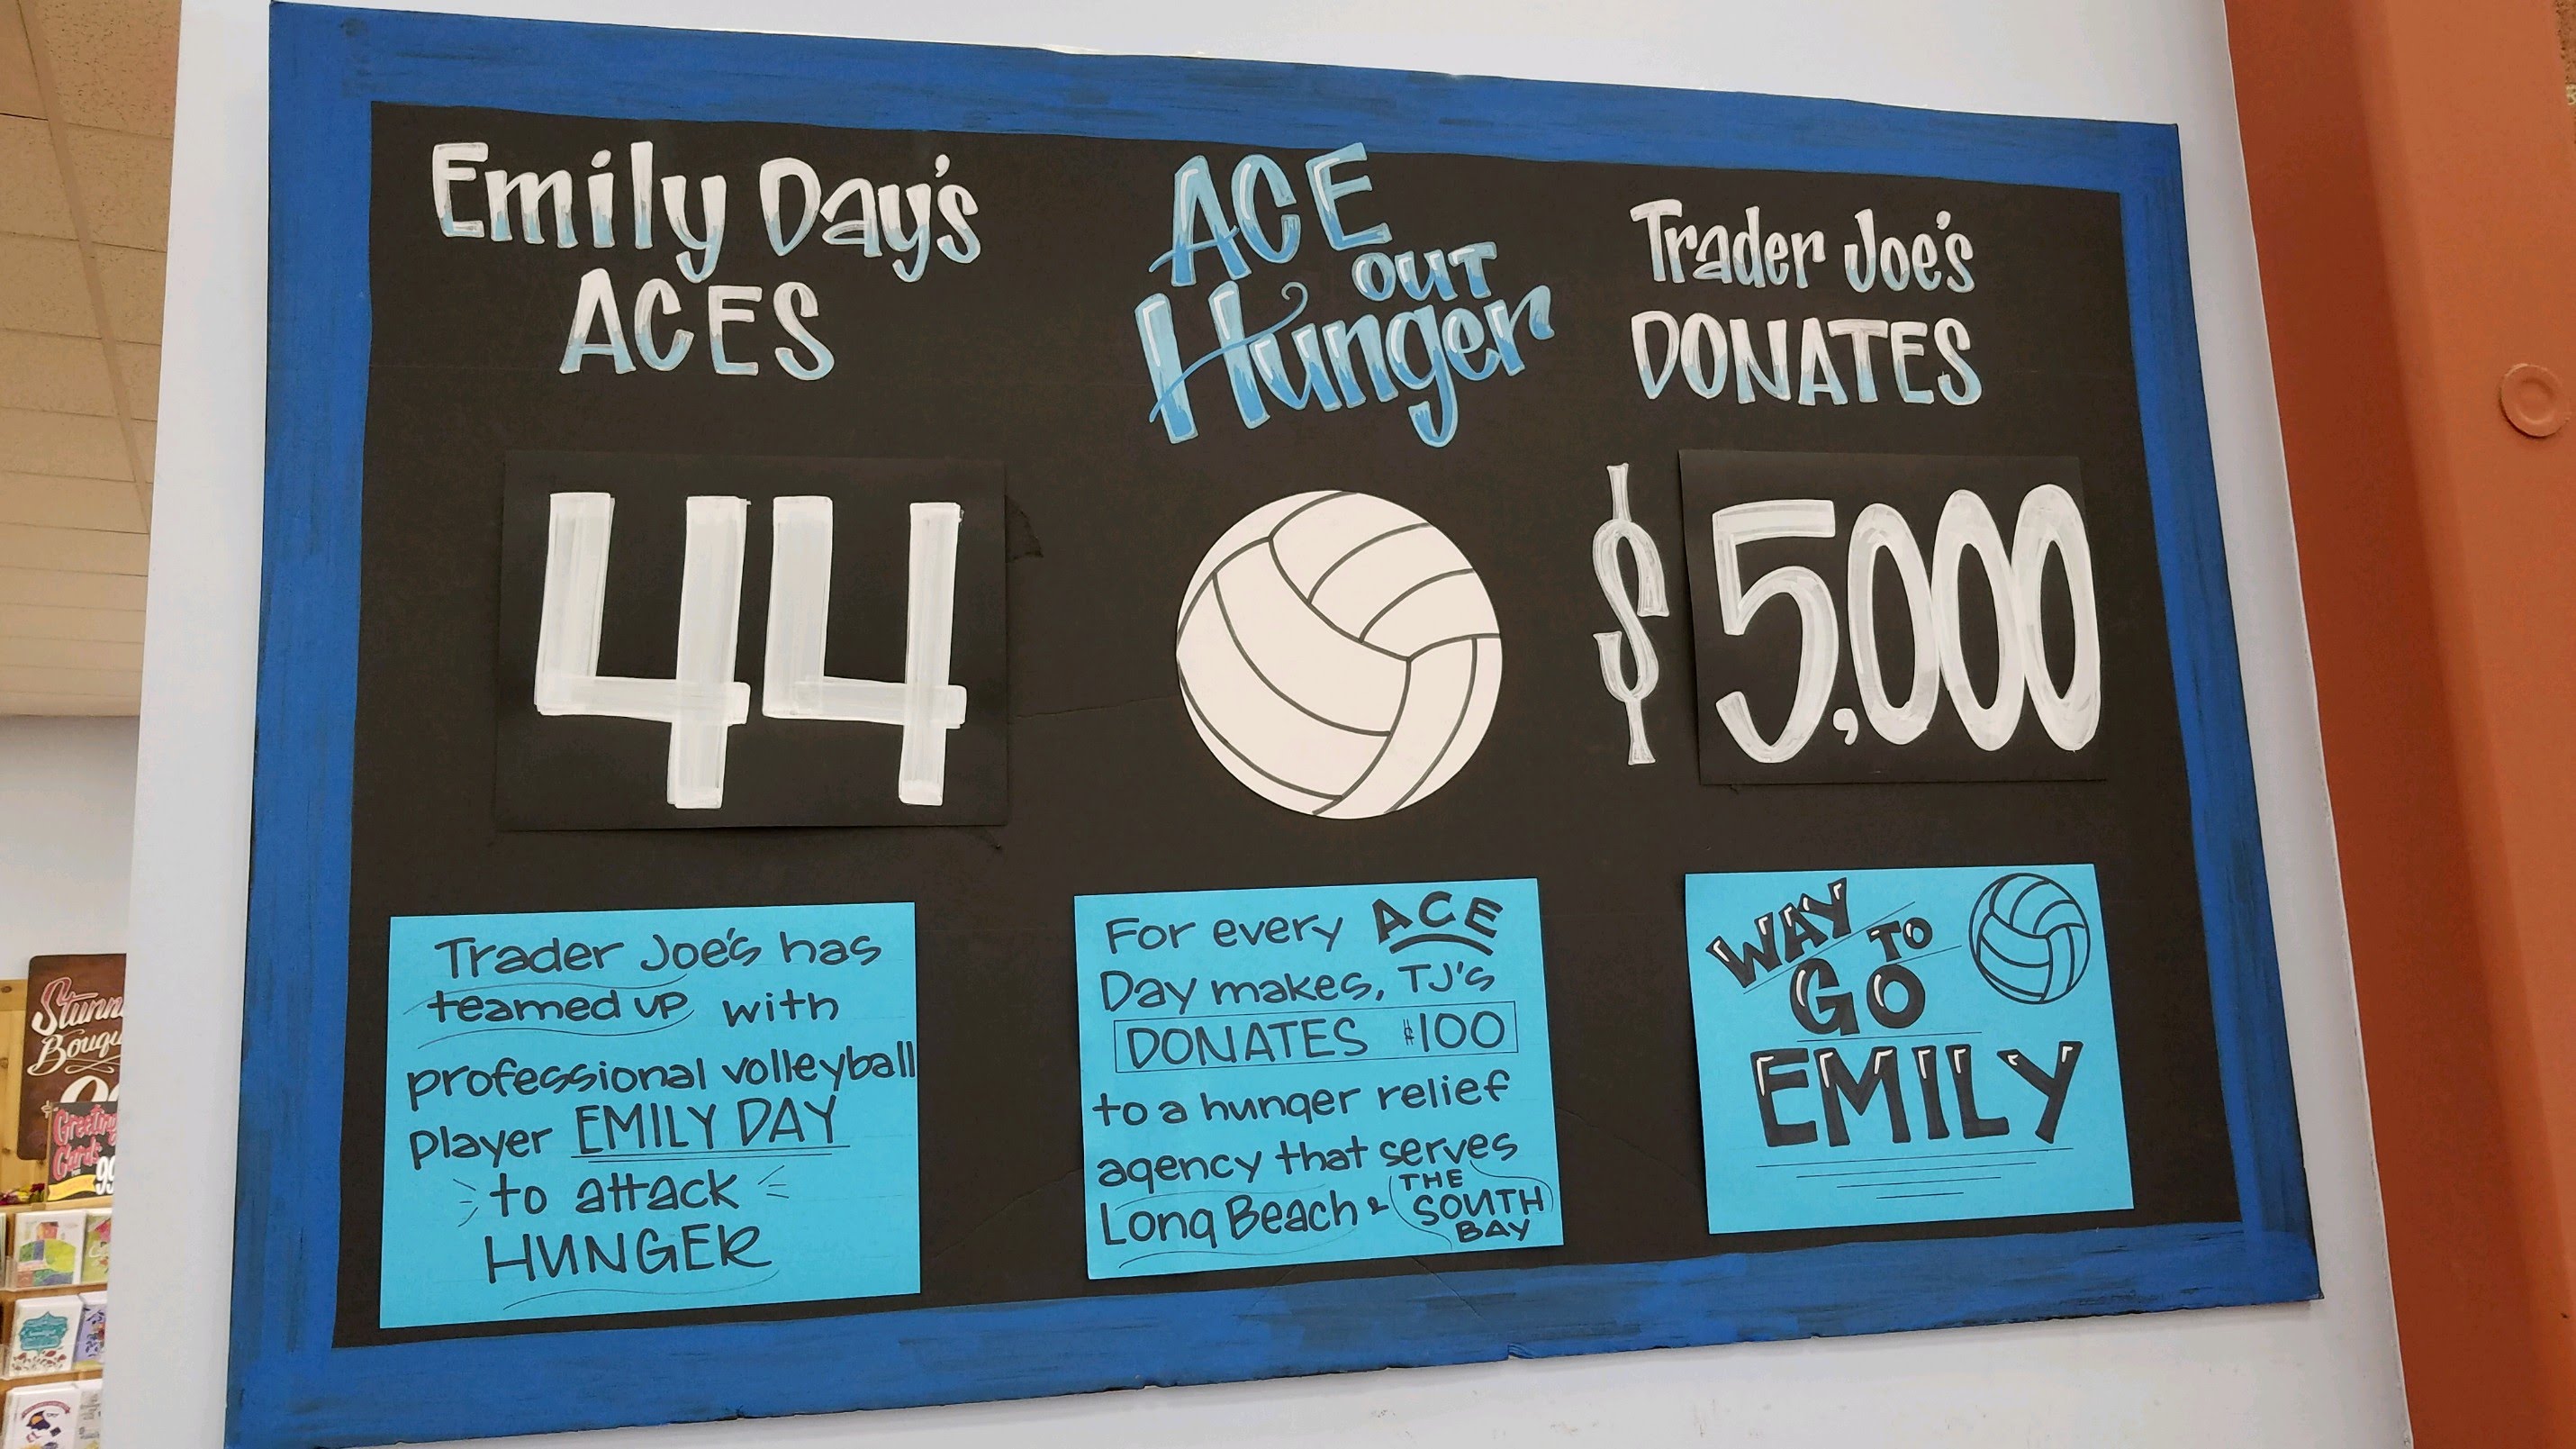 Emily Day's
ACES
44
ACE
OUT
Hunger
Trader Joe's
DONATES
$5,000
Trader Joe's has
teamed up with
professional volleyball
player EMILY DAY
to attack
HUNGER
For every ACE
Day makes, TJ's
DONATES $100
to a hunger relief
agency that serves
Long Beach & THE
SOUTH
BAY
WAY
TO
GO
EMILY
Greeting
Cards
99